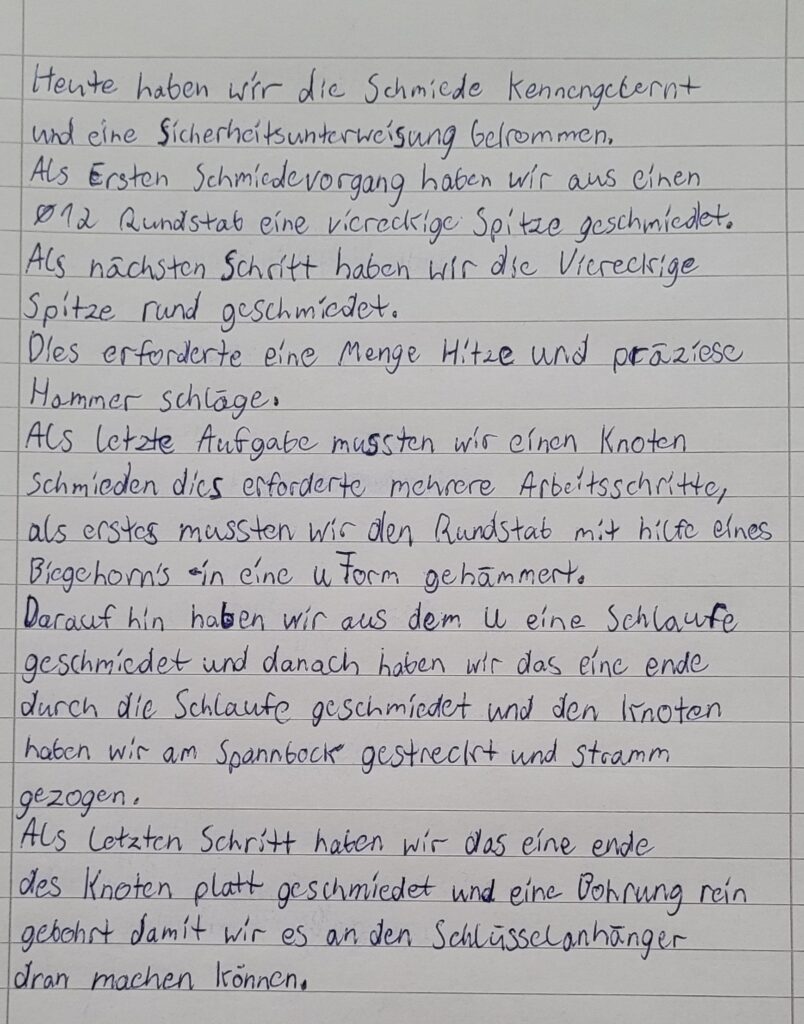 Heute haben wir die Schmiede Kennengelernt
und eine Sicherheitsunterweisung bekommen.
Als Ersten Schmiedevorgang haben wir aus einen
Ø12 Rundstab eine viereckige Spitze geschmiedet.
Als nächsten Schritt haben wir die Viereckige
Spitze rund geschmiedet.
Dies erforderte eine Menge Hitze und präziese
Hammer schläge.
Als letzte Aufgabe mussten wir einen Knoten
Schmieden dies erforderte mehrere Arbeitsschritte,
als erstes mussten wir den Rundstab mit hilfe eines
Biegehorn's in eine u Form gehämmert.
Darauf hin haben wir aus dem U eine Schlaufe
geschmiedet und danach haben wir das eine ende
durch die Schlaufe geschmiedet und den Knoten
haben wir am Spannbock gestreckt und stramm
gezogen.
Als Letzten Schritt haben wir das eine ende
des Knoten platt geschmiedet und eine Bohrung rein
gebohrt damit wir es an den Schlüsselanhänger
dran machen können.